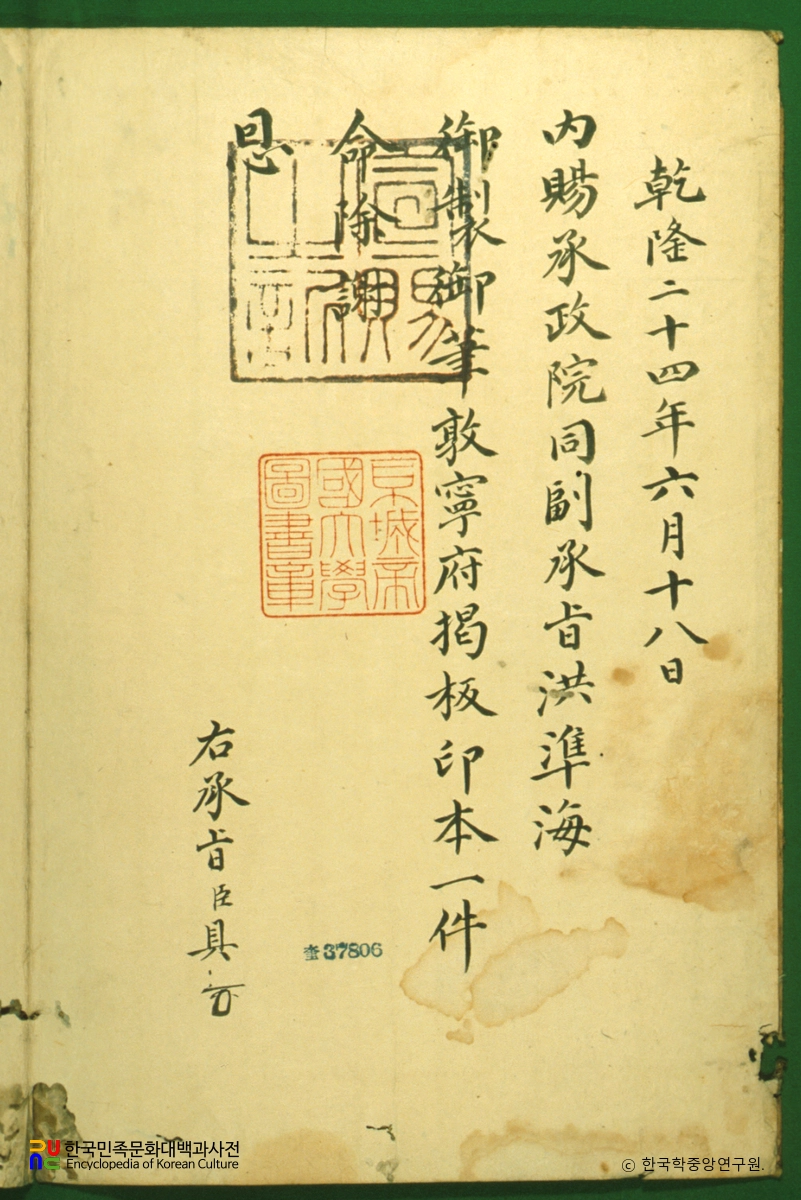 乾隆二十四年六月十八日
內賜承政院同副承旨洪準海
御製御筆敦寧府揭板印本一件
命除謝
恩
右承旨臣具
宣賜之記
京城帝國大學圖書章
奎37806
한국민족문화대백과사전
Encyclopedia of Korean Culture
© 한국학중앙연구원.